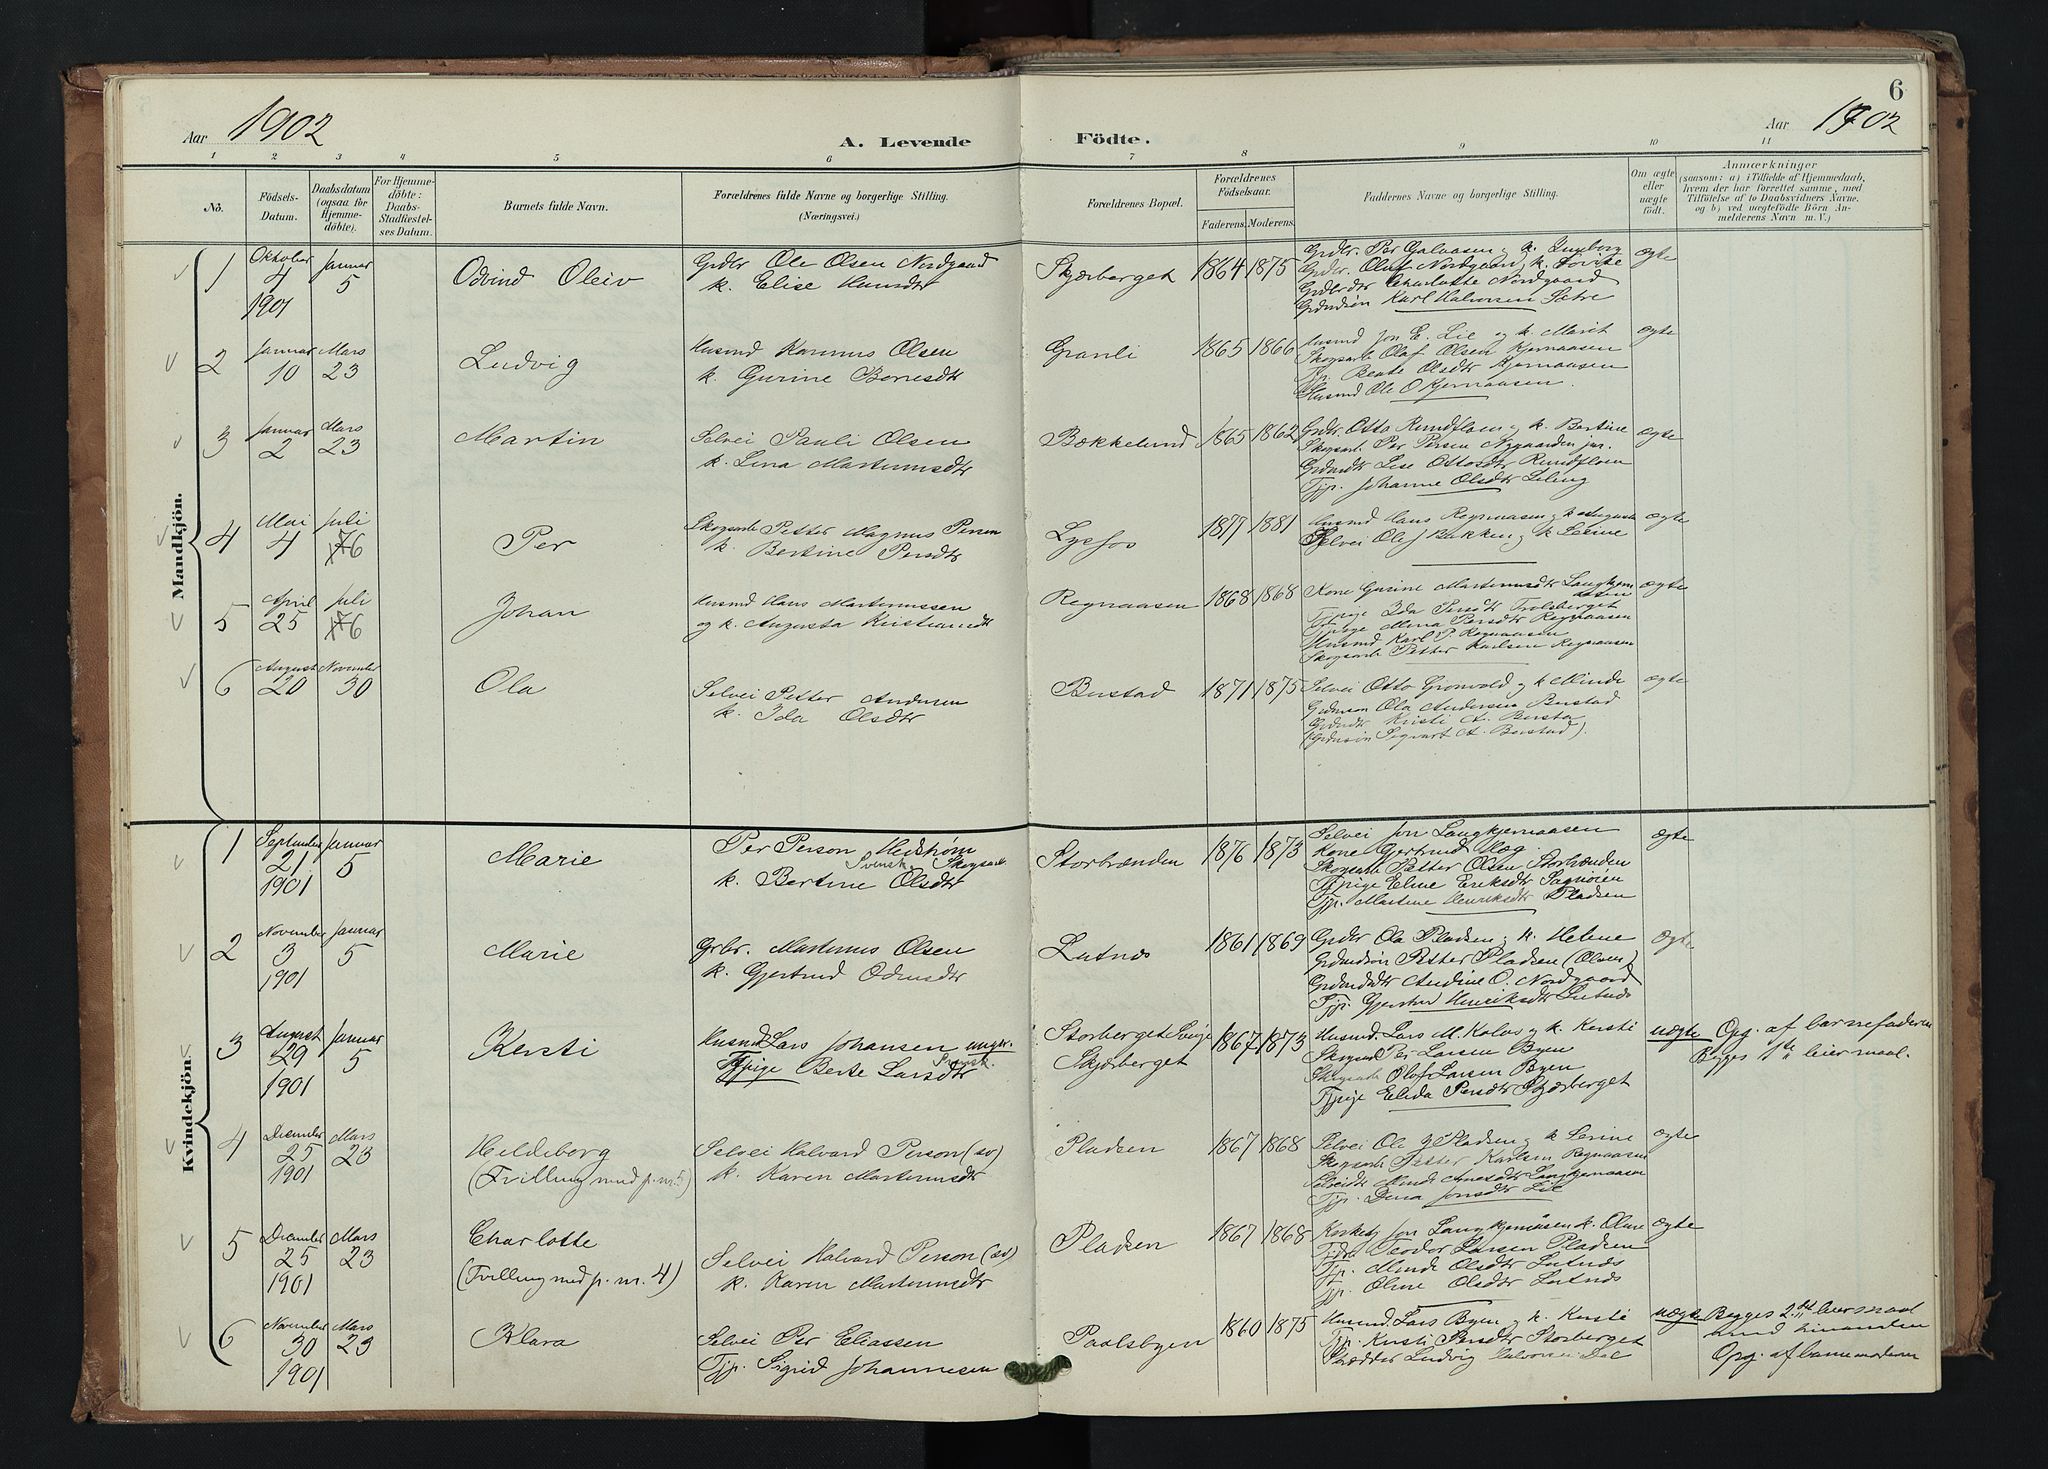 6
Aar 1902
A. Levende
Födte.
Aar 1902
1 2 3 4 5 6 7 8 9 10 11
No.
Födsels-
Datum.
Daabsdatum
(ogsaa for
Hjemme-
döbte).
For Hjemme-
döbte:
Daabs-
Stadfæstel-
ses Datum.
Barnets fulde Navn.
Forældrenes fulde Navne og borgerlige Stilling.
(Næringsvei.)
Forældrenes Bopæl.
Forældrenes
Födselsaar.
Faderens. Moderens.
Faddernes Navne og borgerlige Stilling.
Om ægte
eller
uægte
födt.
Anmærkninger
(saasom: a) i Tilfælde af Hjemmedaab,
hvem der har forrettet samme, med
Tilföielse af to Daabsvidners Navne,
og b) ved uægtefödte Börn An-
melderens Navn m. V.)
Mandkjön.
1
Oktober
4
1901
Januar
5
Odvind Oleiv
Grdbr Ole Olsen Nordgaard
k. Elise
Skjærberget
1864 1875
Grdbr. Per Galaasen og k. Ingeborg
Grdbr. Oluf Nordgaard, k. Lovise
Charlotte Nordgaard
Karl Halvorsen Setre
ægte
2
Januar
10
Mars
23
Ludvig
Husmd Olsen
k. Gurine
Granli
1865 1866
Husmd Jon E. Lie og k. Marit
Skogsarb Olaf Olsen Kjernaasen
Tjp. Beate Olsdtr Kjernaasen
Husmd Ole O Kjernaasen.
ægte
3
Januar
2
Mars
23
Martin
Selvei Pauli Olsen
k. Lina Martinusdtr
Bækkelund
1865 1862
Grdbr. Otto Rundfloen og k. Bertine
Skogsarb. Per Persen Nygaarden jun.
Lise Ottosdtr Rundfloen
Tjp. Johanne Olsdtr
ægte
4
Mai
4
Juli
6
Per
Skogsarb Petter Magnus Person
k. Bertine Persdtr
Lysfos
1877 1881
Husmd Hans Regnaasen og k. Augusta
Selvei Ole J Bakken og k.
ægte
5
April
25
Juli
6
Johan
Husmd Hans Martinussen
og k. Augusta Kristiansdtr
Regnaasen
1868 1868
Kone Gurine Martinusdtr
Tjpige Ida Persdtr Trolsberget
Tjpige Mina Persdtr Regnaasen
Husmd Karl P. Regnaasen
Skogsarb Petter Karlsen Regnaasen
ægte
6
August
20
November
30
Ola
Selvei Petter Andersen
k. Ida Olsdtr
Bustad
1871 1875
Selvei Otto Grønvold og k Minda
Ola Andersen Bustad
Kristi A. Bustad
(Grdmsøn Sigvart A. Bustad).
ægte
Kvindekjön.
1
September
21
1901
Januar
5
Marie
Per Person Medstrøm
Svensk Skogsarb
k. Bertine Olsdtr
Storbrænden
1876 1873
Selvei Jon Langkjernaasen
Kone Gjertrud
Skogsarb Petter Olsen Storbrænden
Tjpige Eline Eriksdtr
Tjp. Martine Henriksdtr Pladsen
ægte
2
November
3
1901
Januar
5
Marie
Grbr. Martinus Olsen
k. Gjertrud
Lutnæs
1861 1869
Grdbr Ola Pladsen, k. Helene
Grdmdsøn Petter Pladsen (Olsen)
Andine O. Nordgaard
Tjp. Henriksdtr Lutnæs
ægte
3
August
29
1901
Januar
5
Kersti
Husmd Lars Johansen ungk.
Svensk.
Tjpige Berte Larsdtr
Storberget Sverige
Skjærberget
1867 1873
Husmd. Lars M. Kolos og k. Kersti
Skogsarb Per Larsen Byen
Skogsarb Olof Larsen Byen
Tjpige Elida Persdtr Skjærberget
uægte
Opg. af barnefaderen
Begges 1ste leiermaal.
4
December
25
1901
Mars
23
Heldeborg
(Tvilling med p. nr. 5)
Selvei Halvard Person (sv)
k. Karen Martinusdtr
Pladsen
1867 1868
Selvei Ole Pladsen og k
Skogsarb Petter Karlsen Regnaasen
Langkjernaasen
Tjp. Dina Jonsdtr Lie
ægte
5
December
25
1901
Mars
23
Charlotte
(Tvilling med p. nr. 4)
Selvei Halvard Person (sv)
k. Karen Martinusdtr
Pladsen
1867 1868
Jon Langkjernaasen k. Oline
Teodor Larsen Pladsen
Tjp. Minda Olsdtr Lutnæs
Tjp. Oline Olsdtr Lutnæs
ægte
6
November
30
1901
Mars
23
Klara
Selvei Per Eliassen
Tjp. Sigrid Johannesen
Paalsbyen
1860 1875
Husmd Lars Byen og k. Kersti
Tjp. Kersti Persdtr Storberget
Skrædder Ludvig Halvorsen Dal
uægte
Begges 2det leiermaal
med hinanden
Opg. af barnemoderen